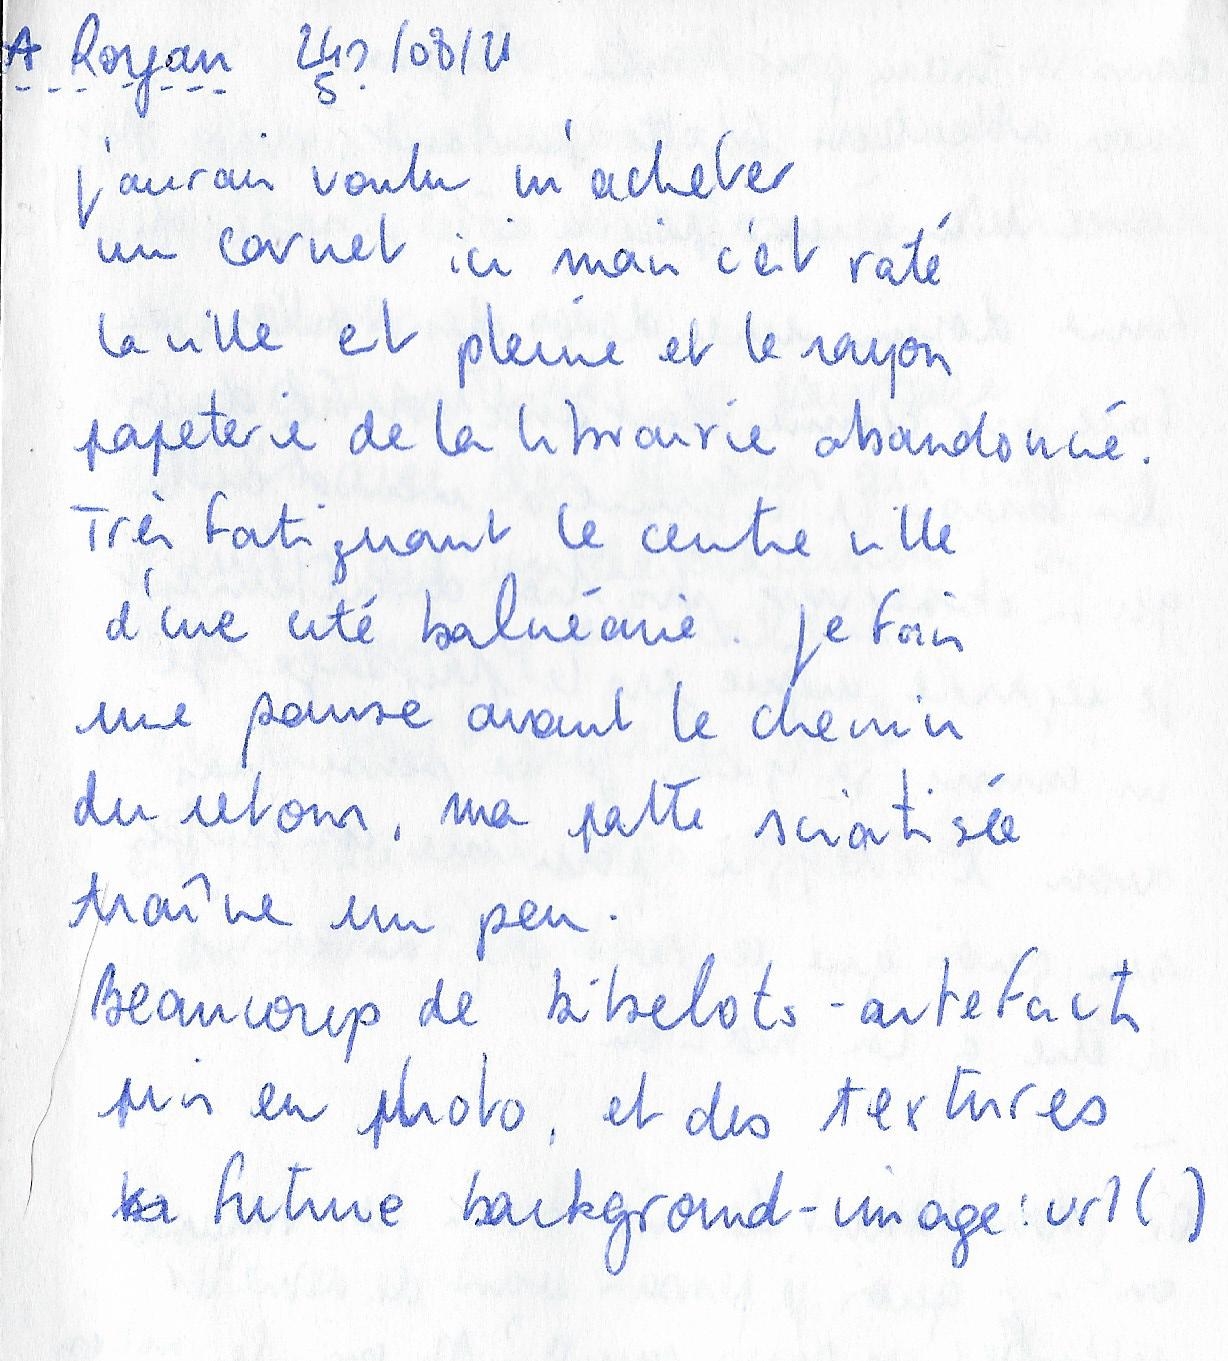 A Royan 24?/08/21
5?
j'aurais voulu m'acheter
un carnet ici mais c'est raté
la ville est pleine et le rayon
papeterie de la librairie abandonné.
Très fatiguant le centre ville
d'une cité balnéaire. Je fais
une pause avant le chemin
du retour, ma patte sciatisée
traîne un peu.
Beaucoup de bibelots-artefacts
pris en photo, et des textures
future background-image:url()